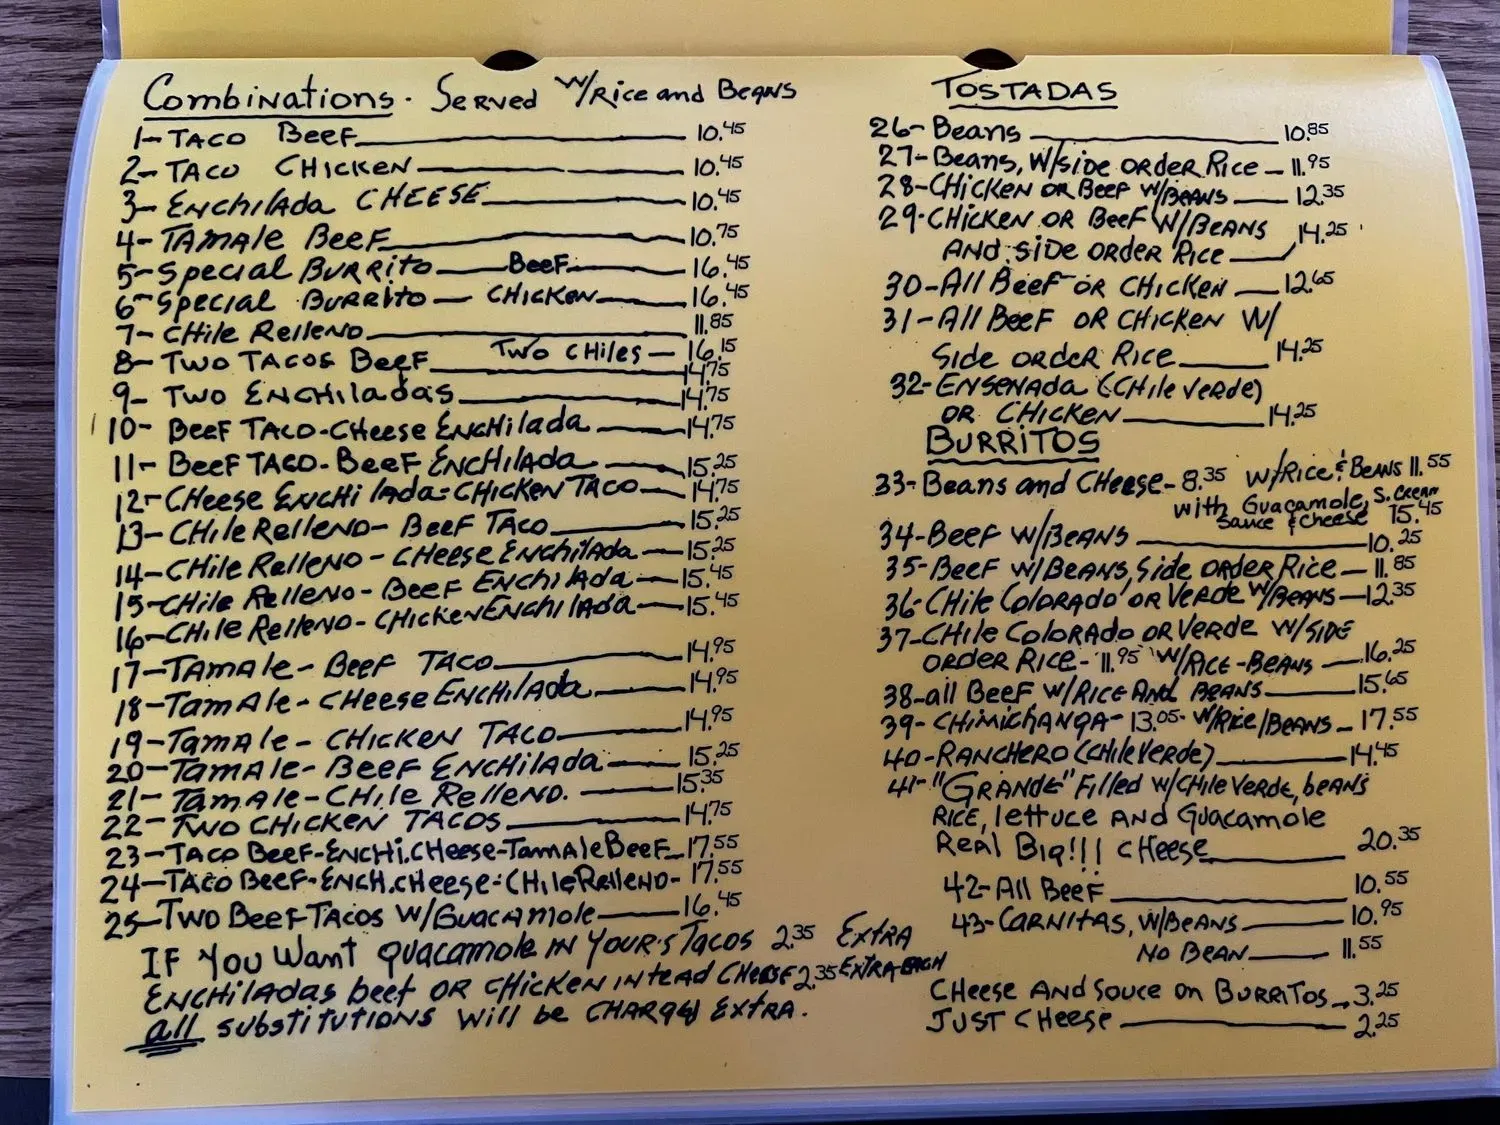 Combinations. Served w/Rice and Beans
1- Taco Beef 10.45
2- Taco Chicken 10.45
3- Enchilada Cheese 10.45
4- Tamale Beef 10.75
5- Special Burrito Beef 16.45
6- Special Burrito - Chicken 16.45
7- Chile Relleno 11.85
Two Chiles - 16.15
8- Two Tacos Beef 14.75
9- Two Enchiladas 14.75
10- Beef Taco-Cheese Enchilada 14.75
11- Beef Taco-Beef Enchilada 15.25
12- Cheese Enchilada-Chicken Taco 14.75
13- Chile Relleno- Beef Taco 15.25
14- Chile Relleno - Cheese Enchilada 15.25
15- Chile Relleno - Beef Enchilada 15.45
16- Chile Relleno - Chicken Enchilada 15.45
17- Tamale - Beef Taco 14.95
18- Tamale - Cheese Enchilada 14.95
19- Tamale - Chicken Taco 14.95
20- Tamale - Beef Enchilada 15.25
21- Tamale - Chile Relleno. 15.35
22- Two Chicken Tacos 14.75
23- Taco Beef-Enchi.Cheese-Tamale Beef 17.55
24- Taco Beef-Ench.Cheese-Chile Relleno- 17.55
25- Two Beef Tacos w/Guacamole 16.45
If You Want guacamole in Your's Tacos 2.35 Extra
Enchiladas beef or chicken intead Cheese 2.35 Extra each
all substitutions will be charged extra.
Tostadas
26- Beans 10.85
27- Beans, w/side order Rice - 11.95
28- Chicken or Beef w/Beans 12.35
29- Chicken or Beef w/Beans
and side order Rice 14.25
30- All Beef or Chicken 12.65
31- All Beef or Chicken w/
Side order Rice 14.25
32- Ensenada (Chile Verde)
or Chicken 14.25
Burritos
33- Beans and Cheese - 8.35 w/Rice & Beans 11.55
with Guacamole, S. Cream
Sauce & cheese 15.45
34- Beef w/Beans 10.25
35- Beef w/Beans, Side order Rice - 11.85
36- Chile Colorado or Verde w/Beans - 12.35
37- Chile Colorado or Verde w/side
order Rice - 11.95 w/Rice-Beans 16.25
38- all Beef w/Rice And Beans 15.65
39- Chimichanga - 13.05 - w/Rice/Beans - 17.55
40- Ranchero (Chile Verde) 14.45
41- "Grande" Filled w/Chile Verde, beans
Rice, lettuce and Guacamole
Real Big!!! cheese 20.35
42- All Beef 10.55
43- Carnitas, w/Beans 10.95
No Bean 11.55
Cheese and Souce on Burritos - 3.25
Just Cheese 2.25